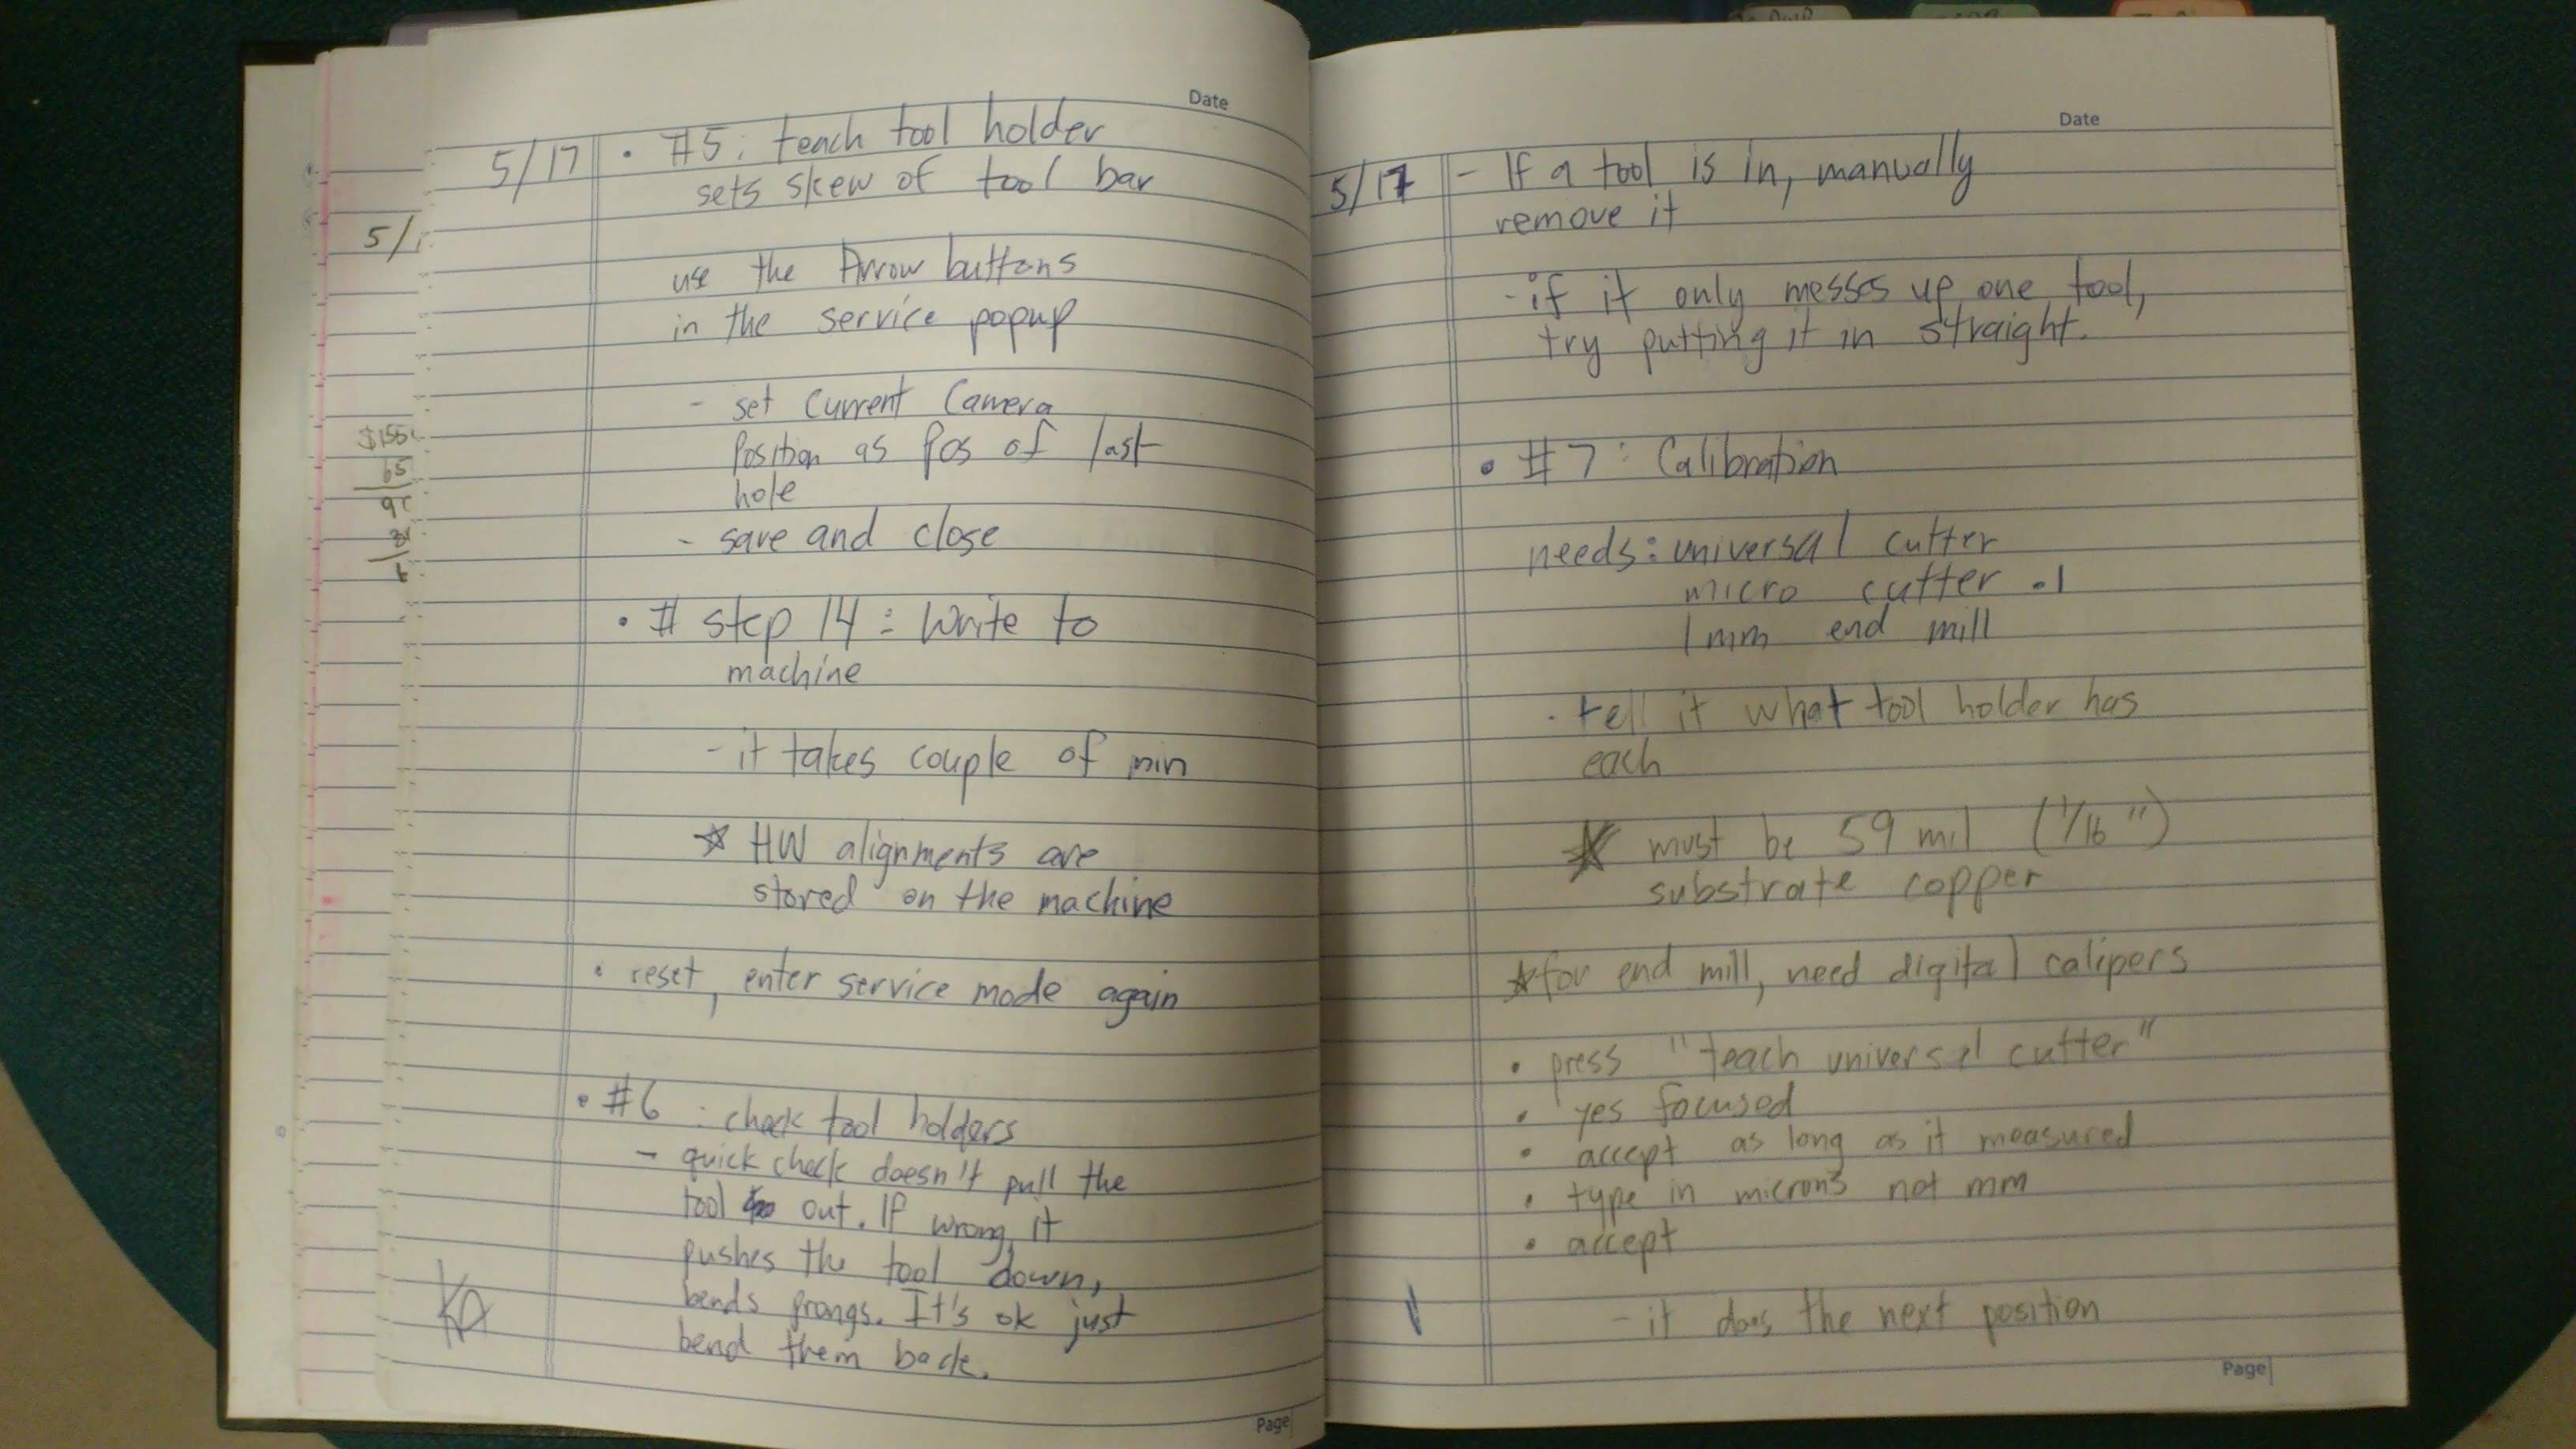 Date
5/17 • #5: teach tool holder
sets skew of tool bar
use the Arrow buttons
in the service popup
- set Current Camera
Position as Pos of last
hole
- save and close
• # step 14: Write to
machine
- it takes couple of min
☆ HW alignments are
stored on the machine
• reset, enter service mode again
• #6: check tool holders
- quick check doesn't pull the
tool out. If wrong, it
pushes the tool down,
bends prongs. It's ok just
bend them back.
Page
5/
$155
65
Date
5/17 - If a tool is in, manually
remove it
- if it only messes up one tool,
try putting it in straight.
• #7: Calibration
needs: universal cutter
micro cutter .1
1mm end mill
• tell it what tool holder has
each
☆ must be 59 mil (1/16")
substrate copper
☆ for end mill, need digital calipers
• press "teach universal cutter"
• yes focused
• accept as long as it measured
• type in microns not mm
• accept
- it does the next position
Page